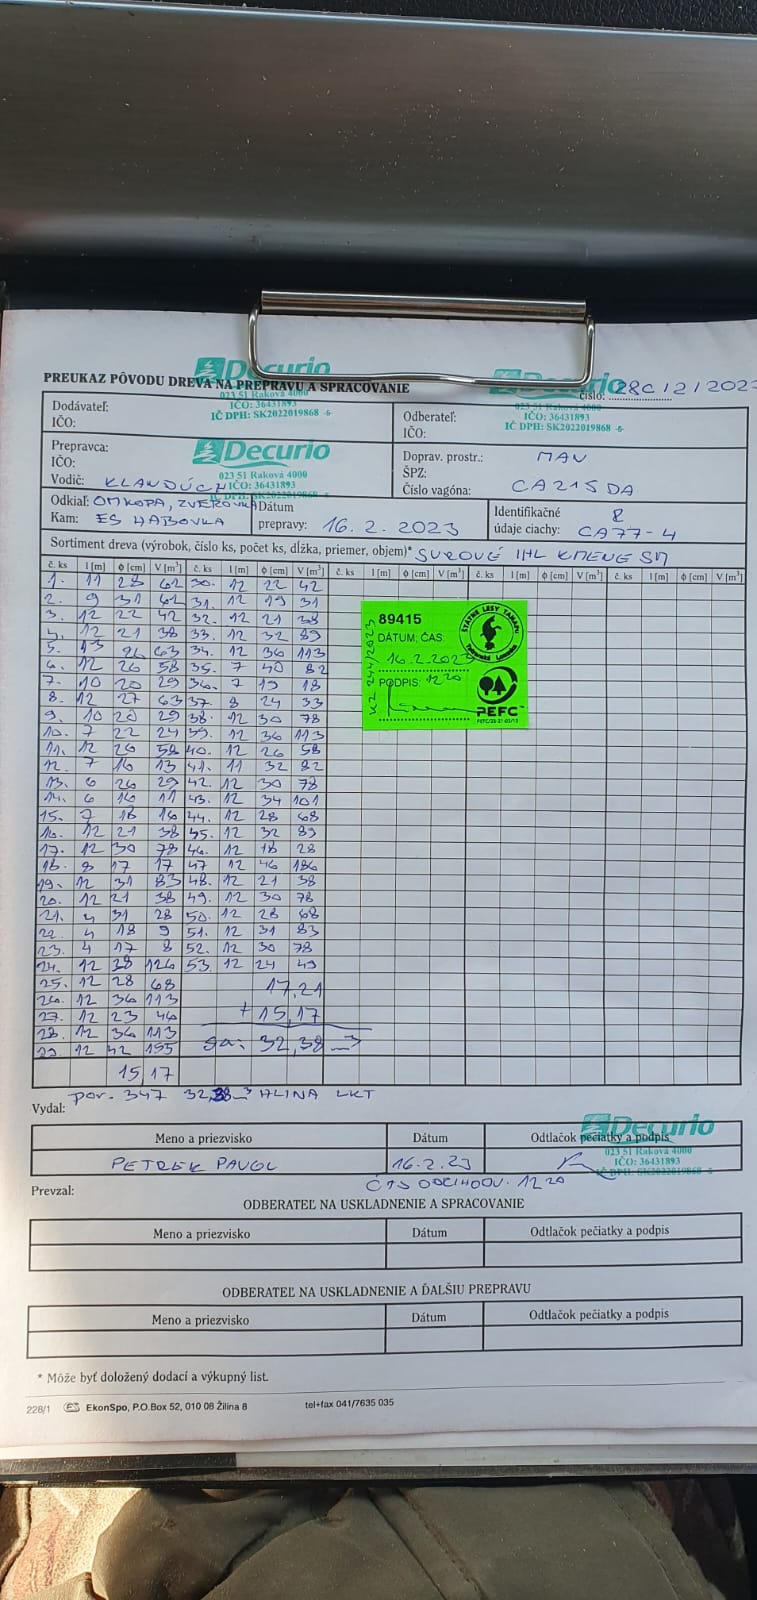 Decurio
PREUKAZ PÔVODU DREVA NA PREPRAVU A SPRACOVANIE
číslo: 280/2/202
023 51 Raková 4000
IČO: 36431893
IČ DPH: SK2022019868 -6-
023 51 Raková 4000
IČO: 36431893
IČ DPH: SK2022019868 -6-
Dodávateľ:
IČO:
Odberateľ:
IČO:
Prepravca:
IČO:
Vodič: KLANDÚCH
Decurio
023 51 Raková 4000
IČO: 36431893
Doprav. prostr.: MAN
ŠPZ:
Číslo vagóna: CA215DA
Odkiaľ: OM KOPA, ZVEROVKA
Kam: ES HABOVKA
Dátum
prepravy: 16. 2. 2023
Identifikačné
údaje ciachy: CA77-4
Sortiment dreva (výrobok, číslo ks, počet ks, dĺžka, priemer, objem)* SUROVÉ IHL KMENE SM
č. ks l [m] ϕ [cm] V [m³] č. ks l [m] ϕ [cm] V [m³] č. ks l [m] ϕ [cm] V [m³] č. ks l [m] ϕ [cm] V [m³] č. ks l [m] ϕ [cm] V [m³]
1. 11 28 62 30. 12 22 42
2. 9 31 62 31. 12 19 31
3. 12 22 42 32. 12 21 38
4. 12 21 38 33. 12 32 89
5. 13 26 63 34. 12 36 113
6. 12 26 58 35. 7 40 82
7. 10 20 29 36. 7 19 18
8. 12 27 63 37. 8 24 33
9. 10 20 29 38. 12 30 78
10. 7 22 24 39. 12 36 113
11. 12 26 58 40. 12 26 58
12. 7 16 13 41. 11 32 82
13. 6 26 29 42. 12 30 78
14. 6 16 11 43. 12 34 101
15. 7 18 16 44. 12 28 68
16. 12 21 38 45. 12 32 89
17. 12 30 78 46. 12 18 28
18. 8 17 17 47 12 46 186
19. 12 31 83 48. 12 21 38
20. 12 21 38 49. 12 30 78
21. 4 31 28 50. 12 28 68
22. 4 18 9 51. 12 31 83
23. 4 17 8 52. 12 30 78
24. 12 38 126 53. 12 24 49
25. 12 28 68
26. 12 36 113
27. 12 23 46
28. 12 36 113
29. 12 42 155
15,17
17,21
+ 15,17
32,38 m³
89415
DÁTUM, ČAS:
16.2.2023
PODPIS: 12 20
KZ 244/2023
ŠTÁTNE LESY TANAPU
Tatranská Lomnica
PEFC
por. 347 32,38 m³ HLINA LKT
Vydal:
Meno a priezvisko Dátum Odtlačok pečiatky a podpis
PETREK PAVOL 16.2.23
Decurio
023 51 Raková 4000
IČO: 36431893
IČ DPH: SK2022019868 -6-
ČAS ODCHODU. 12 20
Prevzal:
ODBERATEĽ NA USKLADNENIE A SPRACOVANIE
Meno a priezvisko Dátum Odtlačok pečiatky a podpis
ODBERATEĽ NA USKLADNENIE A ĎALŠIU PREPRAVU
Meno a priezvisko Dátum Odtlačok pečiatky a podpis
* Môže byť doložený dodací a výkupný list.
228/1 EkonSpo, P.O.Box 52, 010 08 Žilina 8 tel+fax 041/7635 035